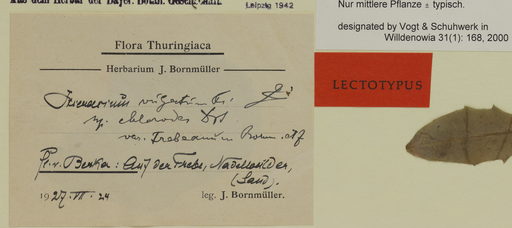 Aus dem Herbar der Bayer. Botan. Gesellschaft.
Leipzig 1942
Nur mittlere Pflanze ± typisch.
designated by Vogt & Schuhwerk in
Willdenowia 31(1): 168, 2000
LECTOTYPUS
Flora Thuringiaca
Herbarium J. Bornmüller
Hieracium vulgatum Fr.
chlorodes Dst
var. Trebeanum Born.
Bz. v. Berka: Auf der Trebe, Nadelwälder,
(Sand).
1927. VII. 24 leg. J. Bornmüller.